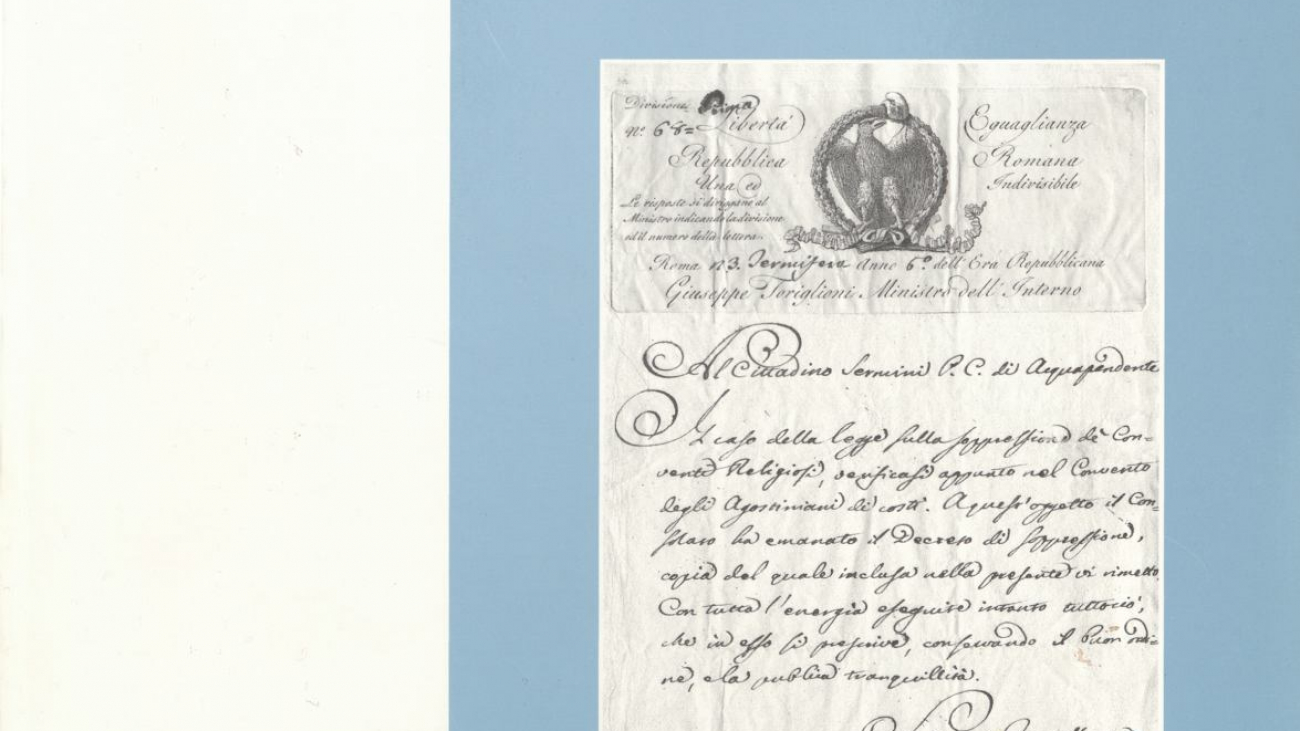 Divisione Prima
n.º 68= Libertà Eguaglianza
Repubblica Romana
Una ed Indivisibile
Le risposte si dirigano al
Ministro indicando la divisione
ed il numero della lettera.
Roma n 3. Termifero Anno 6º dell' Era Repubblicana
Giuseppe Toriglioni Ministro dell' Interno
Al Cittadino Sermini P. C. di Acquapendente
Il caso della legge sulla soppressione de' Con=
venti Religiosi, verificasi appunto nel Convento
degli Agostiniani di costì. A quest'oggetto il Con=
solato ha emanato il Decreto di soppressione,
copia del quale inclusa nella presente vi rimetto
Con tutta l'energia eseguite intanto tuttociò,
che in esso si prescrive, conservando il buon ordi=
ne, e la publica tranquillità.